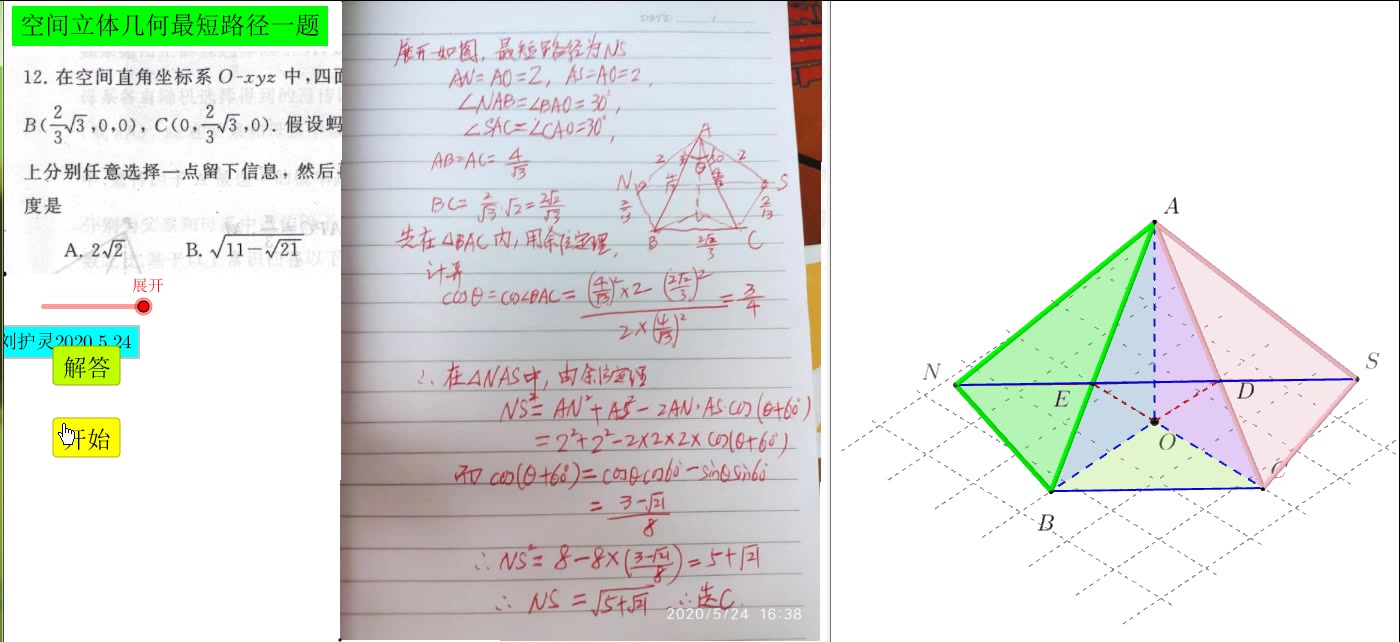 空间立体几何最短路径一题
12. 在空间直角坐标系 O-xyz 中,四面
B(2/3√3,0,0), C(0,2/3√3,0). 假设蚂
上分别任意选择一点留下信息,然后
度是
A. 2√2 B. √(11-√21)
展开
刘护灵2020.5.24
解答
开始
DATE:
展开如图, 最短路径为NS
AN=AO=2, AS=AO=2,
∠NAB=∠BAO=30°,
∠SAC=∠CAO=30°,
AB=AC=4/√3
BC=2/√3·√2=2√2/√3
先在△BAC内,用余弦定理,
计算
cosθ=cos∠BAC=((4/√3)²×2 (2√2/3)²)/(2×(4/√3)²)=3/4
∴在△NAS中,由余弦定理
NS²=AN²+AS²-2AN·AS·cos(θ+60°)
=2²+2²-2×2×2×cos(θ+60°)
而cos(θ+60°)=cosθcos60°-sinθsin60°
=(3-√21)/8
∴NS²=8-8×((3-√21)/8)=5+√21
∴NS=√(5+√21) ∴选C.
2020/5/24 16:38
A
2 30 2
N S
B C
A
N S
E D
O
B C